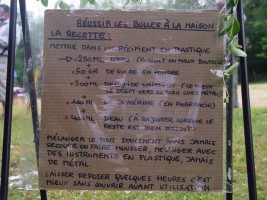 RÉUSSIR LES BULLES À LA MAISON
LA RECETTE:
METTRE DANS UN RÉCIPIENT EN PLASTIQUE
250ML D'EAU (
+
50GR DE SUCRE EN POUDRE
+
200ML DE LIQUIDE VAISSELLE (
LE MIENT
+
ML GLYCÉRINE (EN PHARMACIE)
+
ML D'EAU (À RAJOUTER LORSQUE LE
RESTE EST BIEN DISSOUT)
MÉLANGER LE TOUT DOUCEMENT SANS JAMAIS
SECOUER OU FAIRE MOUSSER, MÉLANGER AVEC
DES INSTRUMENTS EN PLASTIQUE, JAMAIS
DE MÉTAL.
LAISSER REPOSER QUELQUES HEURES C'EST
MIEUX SANS COUVRIR AVANT UTILISATION